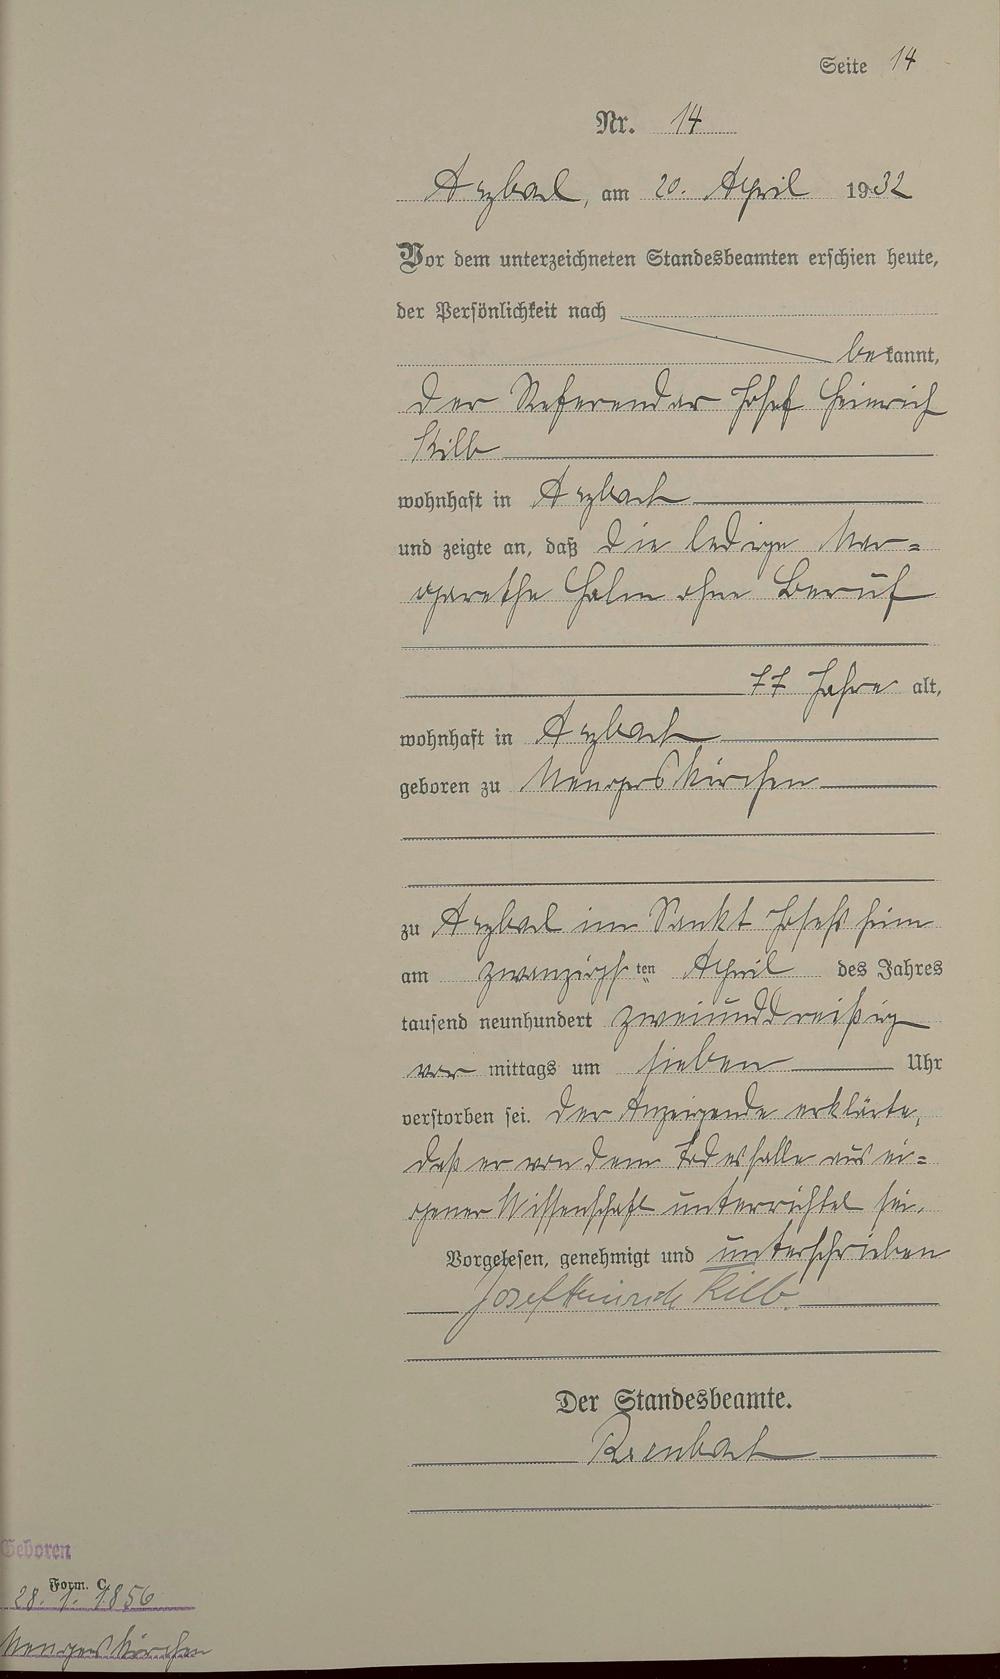 Seite 14
Nr. 14
Arzbach, am 20. April 1932
Vor dem unterzeichneten Standesbeamten erschien heute,
der Persönlichkeit nach
bekannt,
der Referendar Josef Heinrich
Kilb
wohnhaft in Arzbach
und zeigte an, daß die ledige Mar=
garethe Halm ohne Beruf
77 Jahre alt,
wohnhaft in Arzbach
geboren zu Mengerskirchen
zu Arzbach im Sankt Josefsheim
am zwanzigsten April des Jahres
tausend neunhundert zweiunddreißig
vor mittags um sieben Uhr
verstorben sei. Der Anzeigende erklärte,
daß er von dem Todesfalle aus ei=
gener Wissenschaft unterrichtet sei.
Vorgelesen, genehmigt und unterschrieben
Josef Heinrich Kilb.
Der Standesbeamte.
Geboren
Form. C.
28. 1. 1856
Mengerskirchen